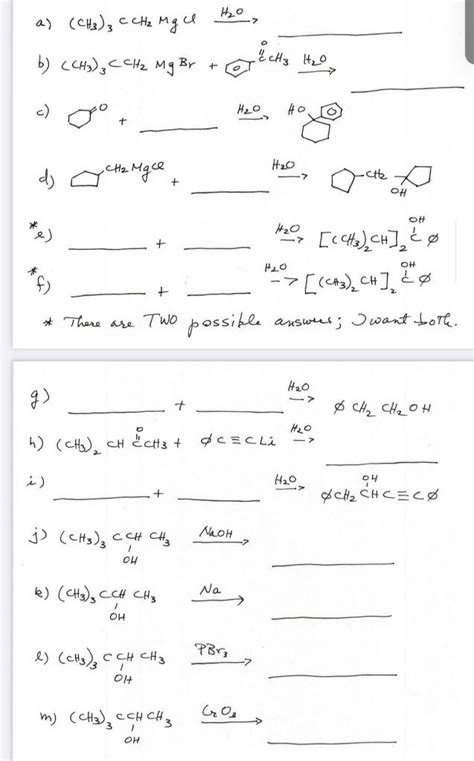 a) (CH3)3 CCH2 MgCl H2O →
b) (CH3)3CCH2 MgBr + O CCH3 H2O →
c) O + H2O → HO
d) CH2MgCl + H2O → CH2 OH
*e) + H2O → [(CH3)2CH]2 C Ø OH
*f) + H2O → [(CH3)2 CH]2 C Ø OH
* There are TWO possible answers; I want both.
g) + H2O → Ø CH2 CH2OH
h) (CH3)2 CH C CH3 + ØC≡CLi H2O → O
i) + H2O → ØCH2 CHC≡CØ OH
j) (CH3)3 CCH CH3 NaOH → OH
k) (CH3)3 CCH CH3 Na → OH
l) (CH3)3 CCH CH3 PBr3 → OH
m) (CH3)3 CCH CH3 CrO3 → OH